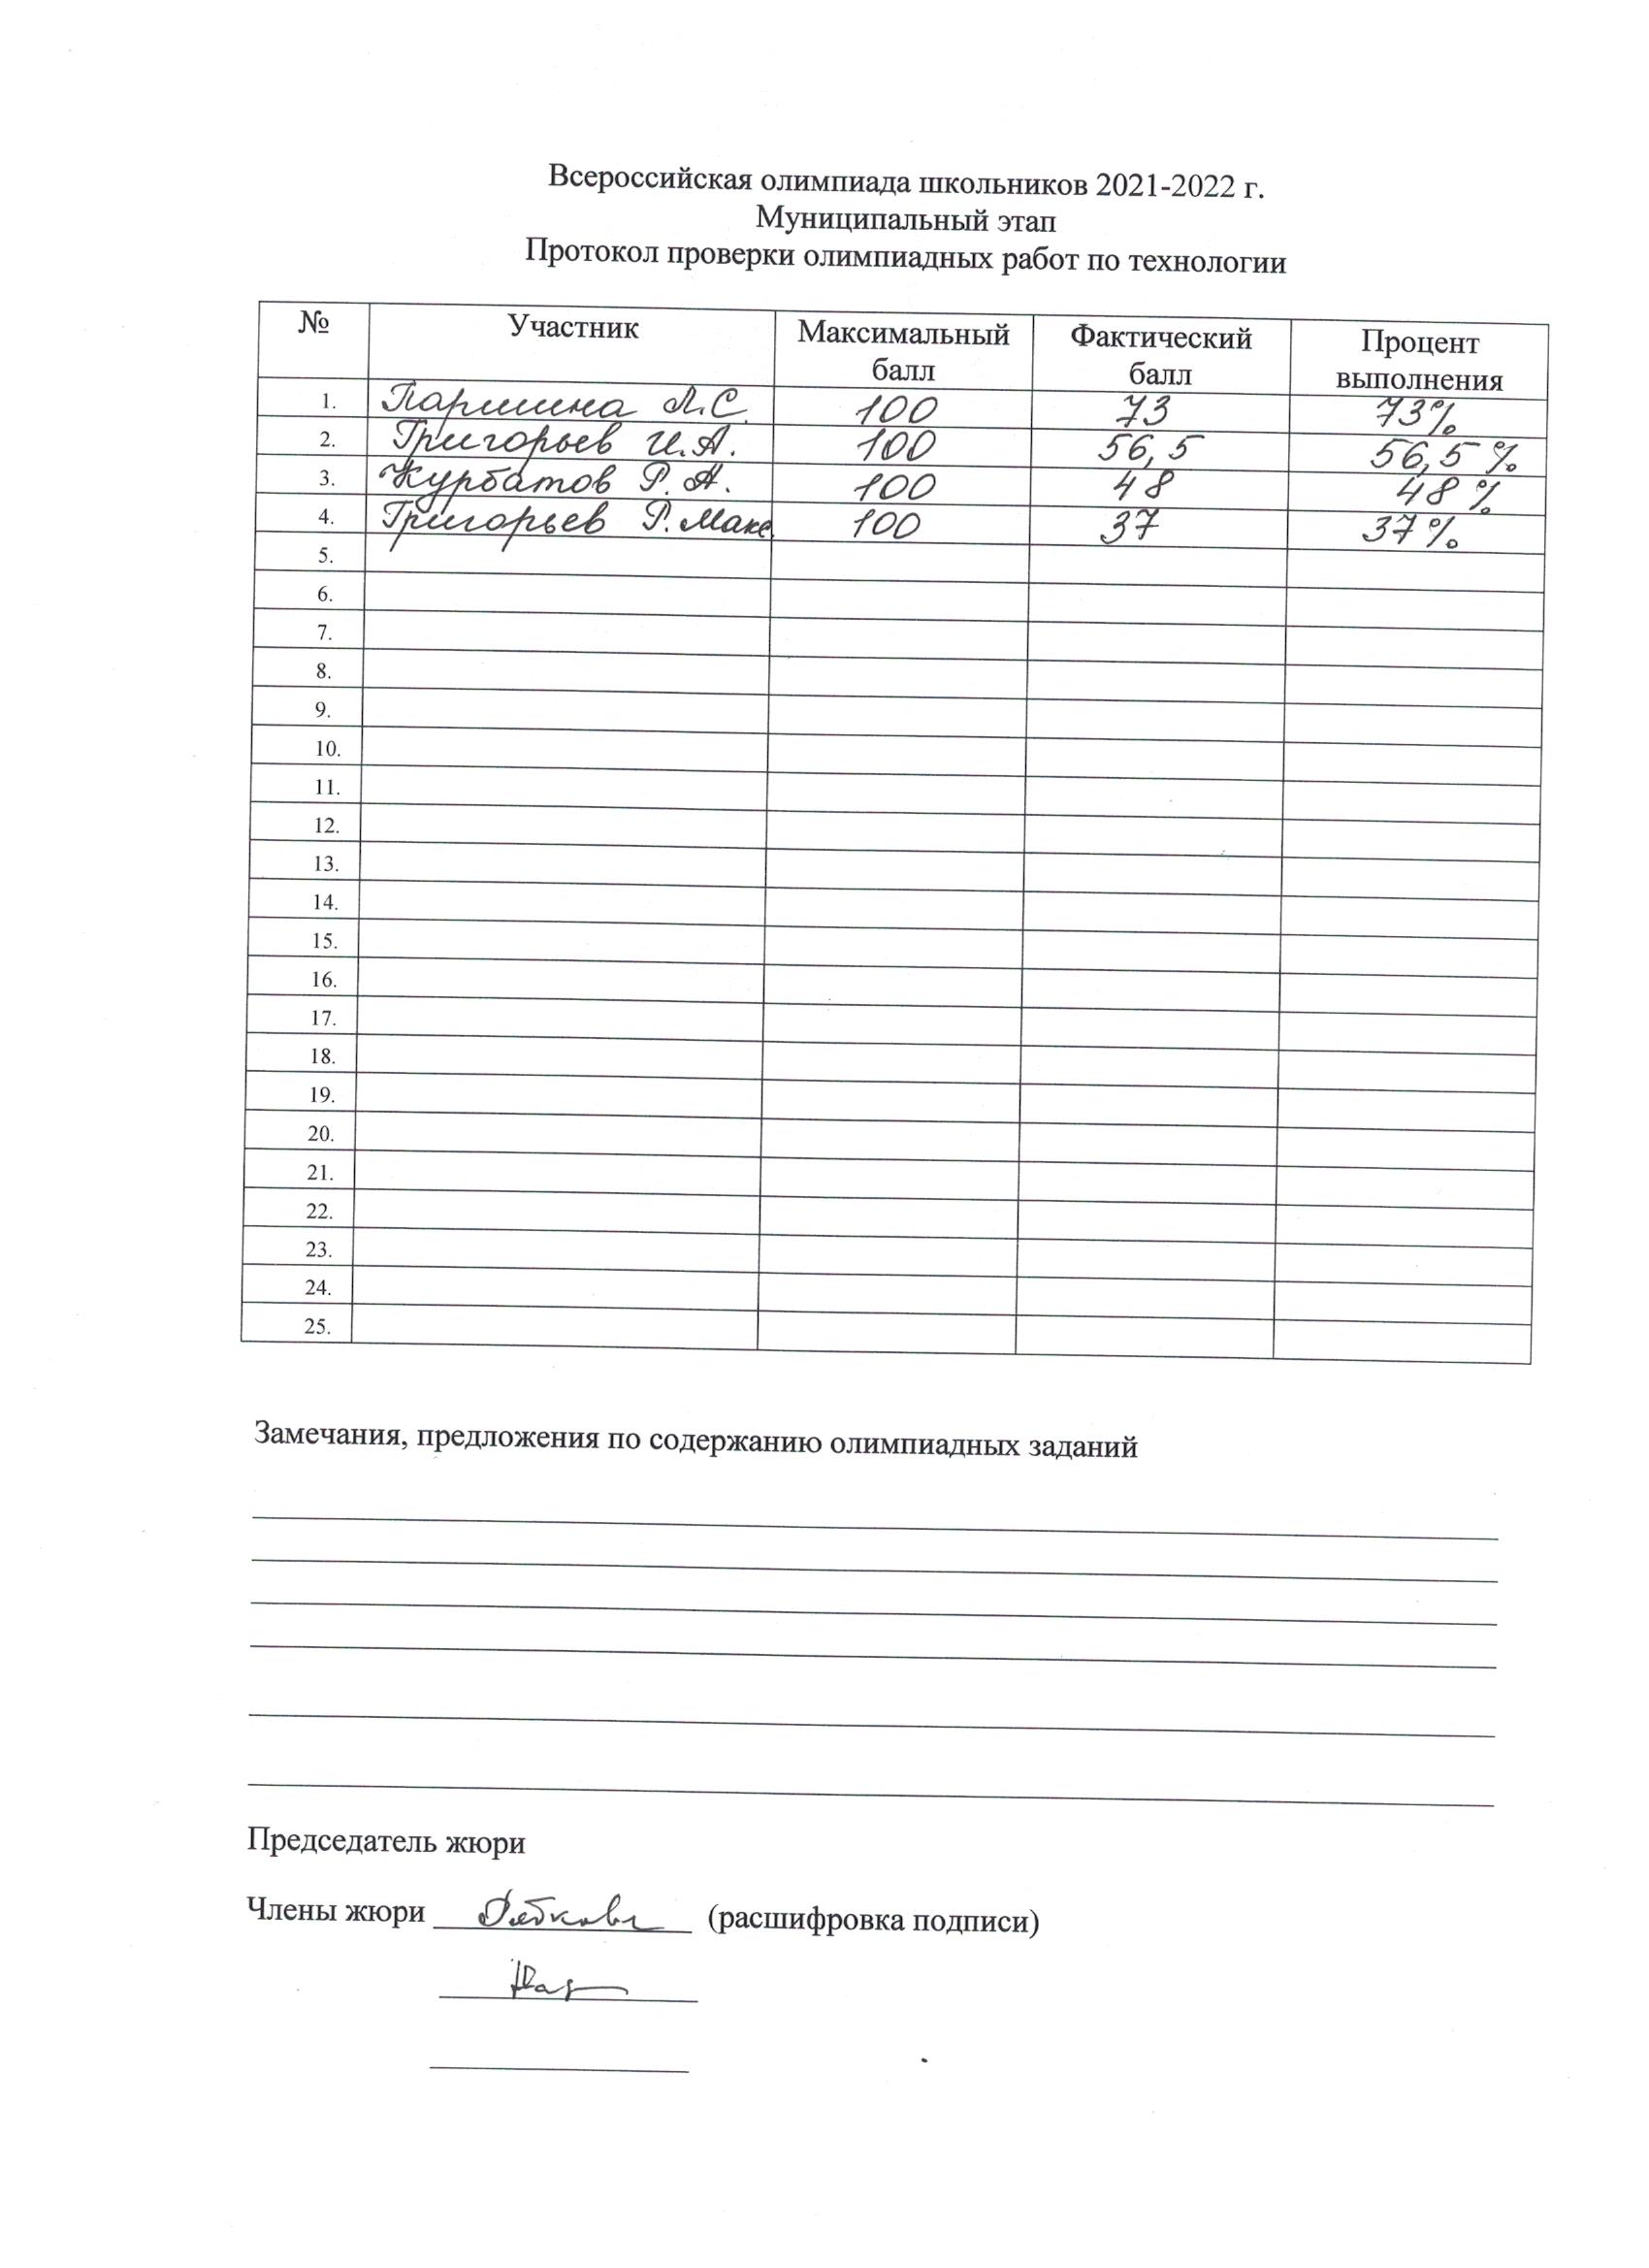 Всероссийская олимпиада школьников 2021-2022 г.
Муниципальный этап
Протокол проверки олимпиадных работ по технологии
№ Участник Максимальный балл Фактический балл Процент выполнения
1. Паршина Л.С. 100 73 73%
2. Григорьев И.А. 100 56,5 56,5 %
3. Курбатов Р. А. 100 48 48 %
4. Григорьев Р. Макс. 100 37 37 %
5.
6.
7.
8.
9.
10.
11.
12.
13.
14.
15.
16.
17.
18.
19.
20.
21.
22.
23.
24.
25.
Замечания, предложения по содержанию олимпиадных заданий
Председатель жюри
Члены жюри (расшифровка подписи)